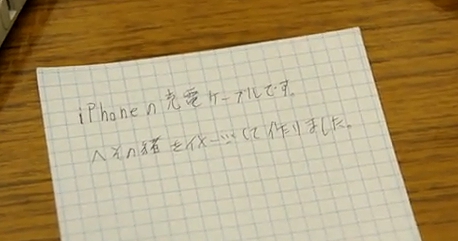 iPhoneの充電ケーブルです。
へその緒をイメージして作りました。